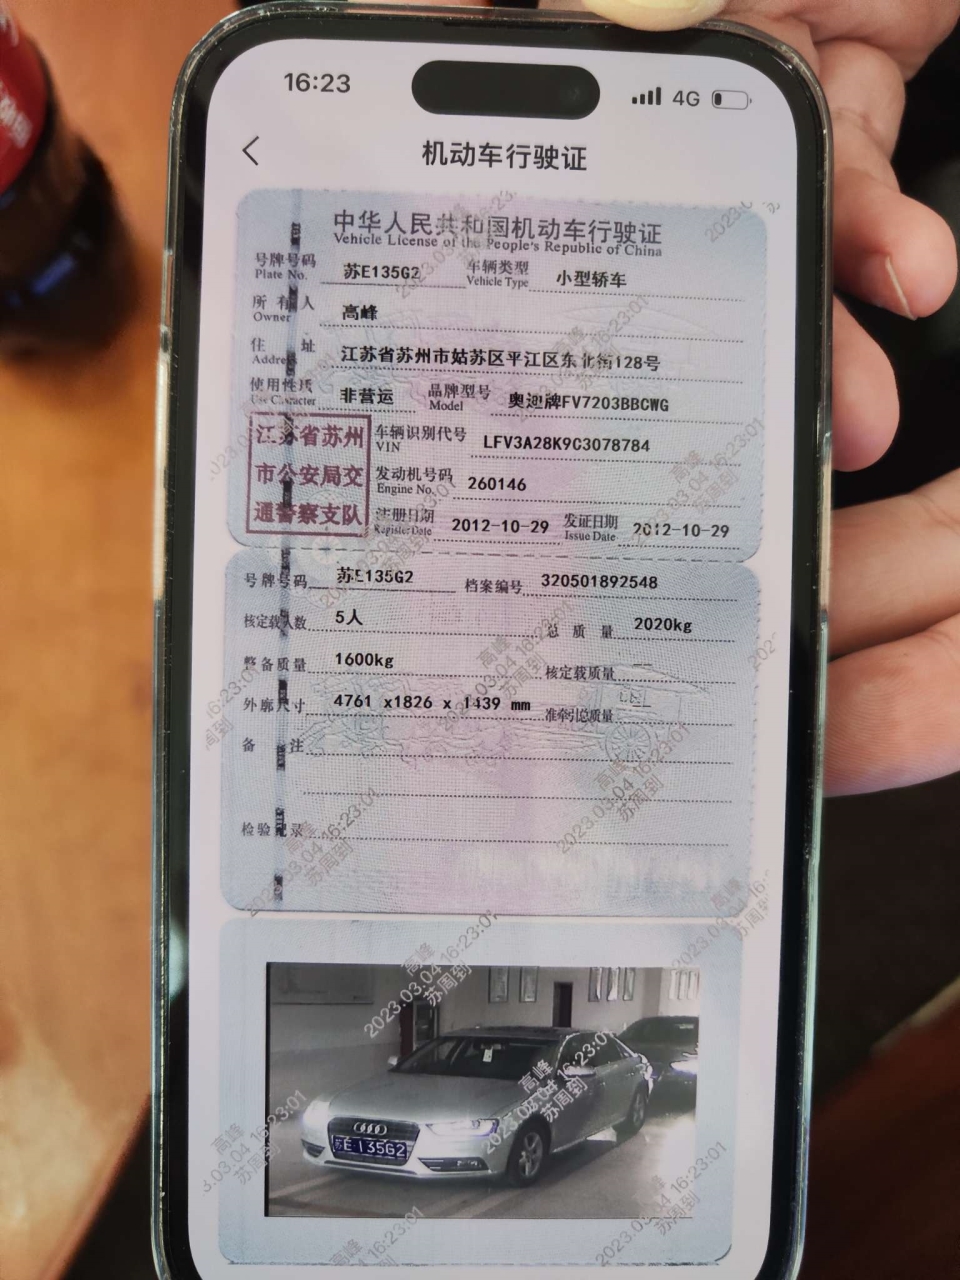 16:23
4G
机动车行驶证
中华人民共和国机动车行驶证
Vehicle License of the People's Republic of China
号牌号码 苏E135G2 车辆类型 小型轿车
Plate No. Vehicle Type
所有人 高峰
Owner
住址 江苏省苏州市姑苏区平江区东北街128号
Address
使用性质 非营运 品牌型号 奥迪牌FV7203BBCWG
Use Character Model
江苏省苏州
市公安局交
通警察支队
车辆识别代号 LFV3A28K9C3078784
VIN
发动机号码 260146
Engine No.
注册日期 2012-10-29 发证日期 2012-10-29
Register Date Issue Date
号牌号码 苏E135G2 档案编号 320501892548
核定载人数 5人 总质量 2020kg
整备质量 1600kg 核定载质量 --
外廓尺寸 4761 x1826 x 1439 mm 准牵引总质量 --
备注
检验记录
苏E 135G2
高峰
2023.03.04 16:23:01
苏周到